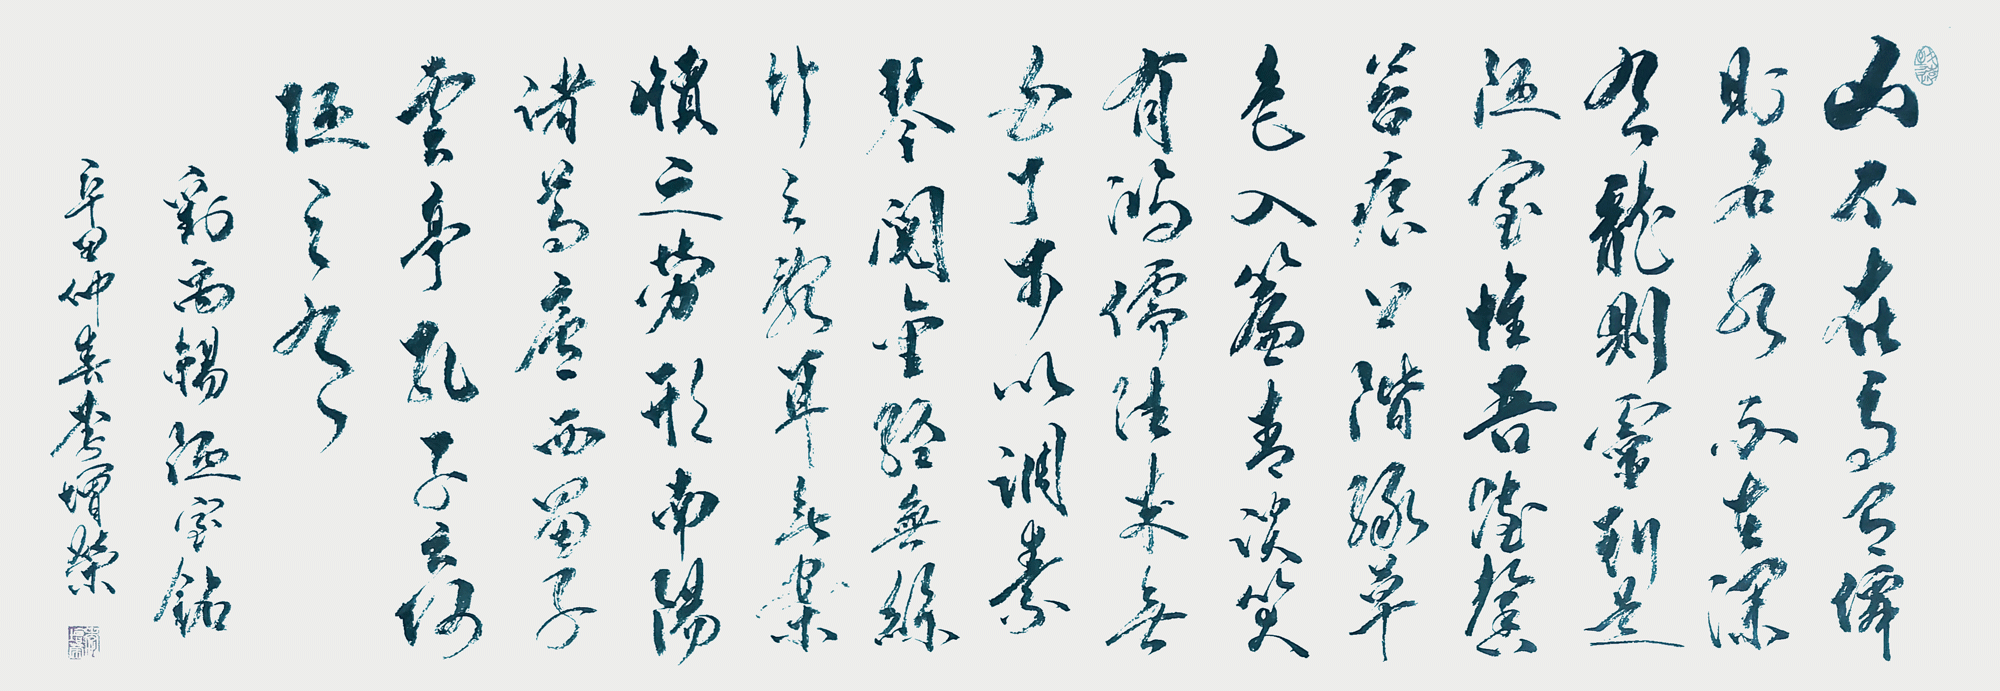 山不在高有僊
則名水不在深
有龍則靈斯是
陋室惟吾德馨
苔痕上階綠草
色入簾青談笑
有鴻儒往來無
白丁可以調素
琴閱金經無絲
竹之亂耳無案
牘之勞形南陽
諸葛廬西蜀子
雲亭孔子云何
陋之有
劉禹錫陋室銘
辛丑仲春李增榮